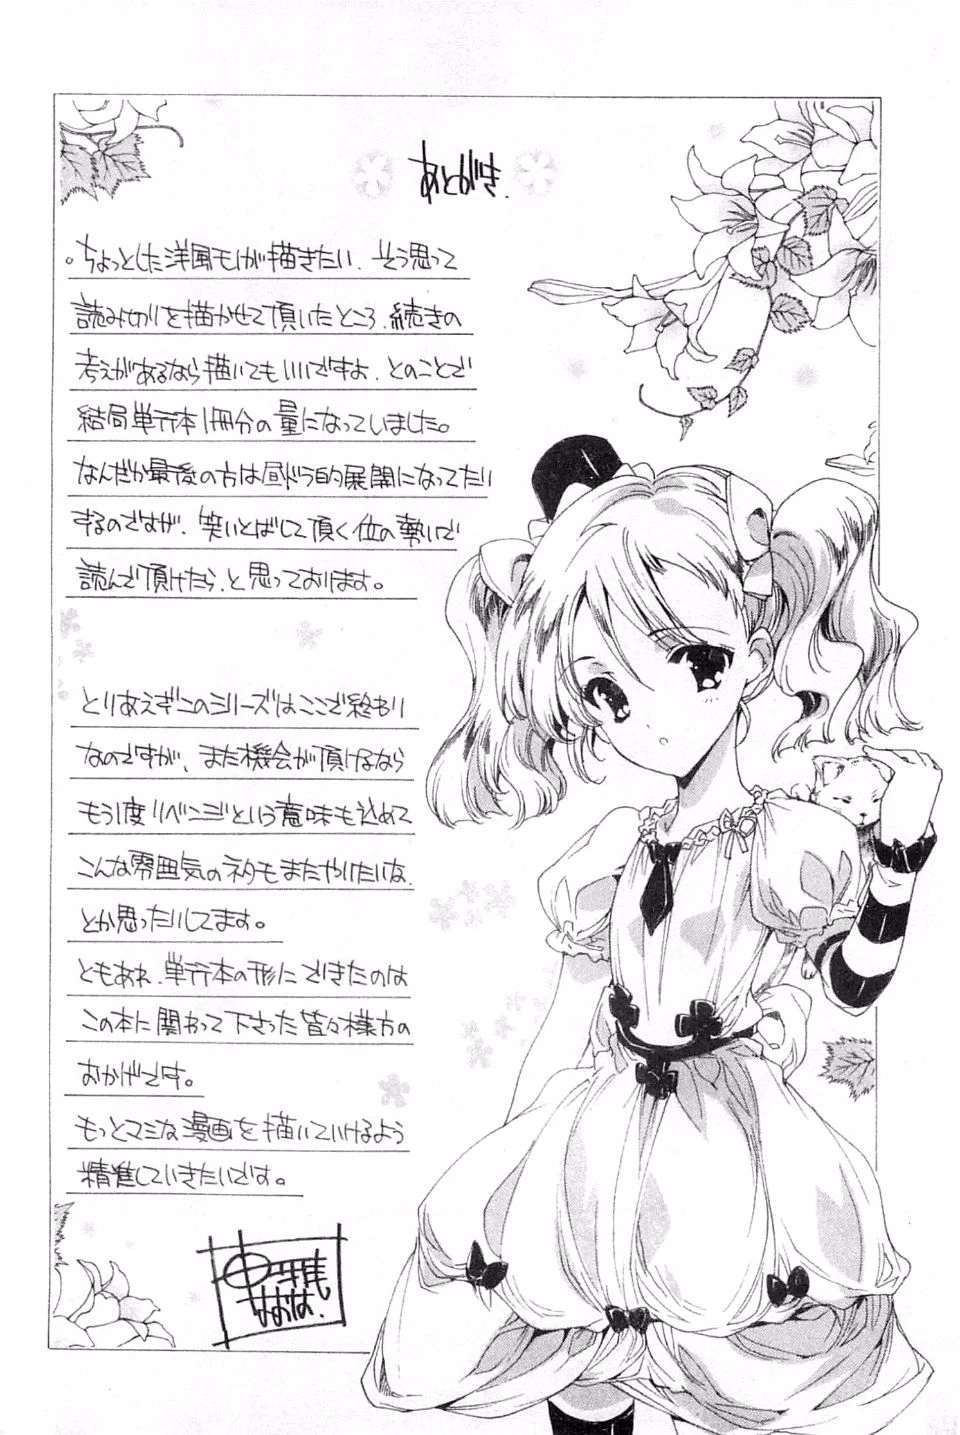 あとがき.
。ちょっとした洋風モノが描きたい、そう思って
読みきりを描かせて頂いたところ、続きの
考えがあるなら描いてもいいですよ、とのことで
結局単行本1冊分の量になっていました。
なんだか最後の方は昼ドラ的展開になってたり
するのですが、笑いとばして頂く位の勢いで
読んで頂けたら、と思っております。
とりあえずこのシリーズはここで終わり
なのですが、また機会が頂けるなら
もう1度リベンジという意味も込めて
こんな雰囲気のネタもまたやりたいな、
とか思ったりしてます。
ともあれ、単行本の形にできたのは
この本に関わって下さった皆々様方の
おかげです。
もっとマシな漫画を描いていけるよう
精進していきたいです。